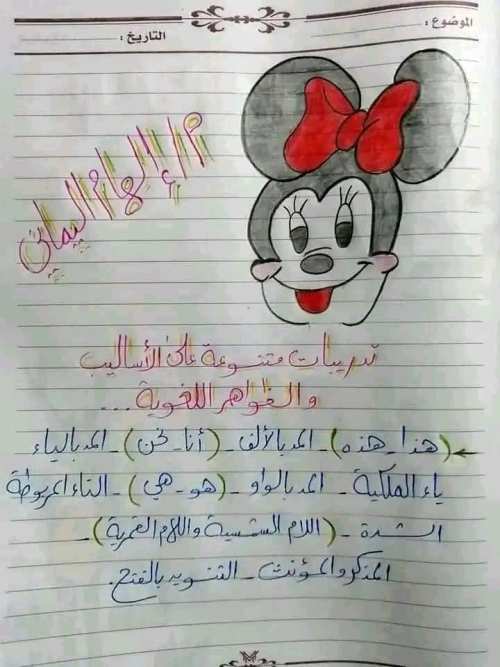 الموضوع :
التاريخ :
م/إلهام اليماني
تدريبات متنوعة على الأساليب
والظواهر اللغوية ...
(هذا - هذه) - المد بالألف - (أنا - نحن) - المد بالياء
ياء الملكية - المد بالواو - (هو - هي) - التاء المربوطة
الشدة - (اللام الشمسية واللام القمرية) -
المذكر والمؤنث - التنوين بالفتح.